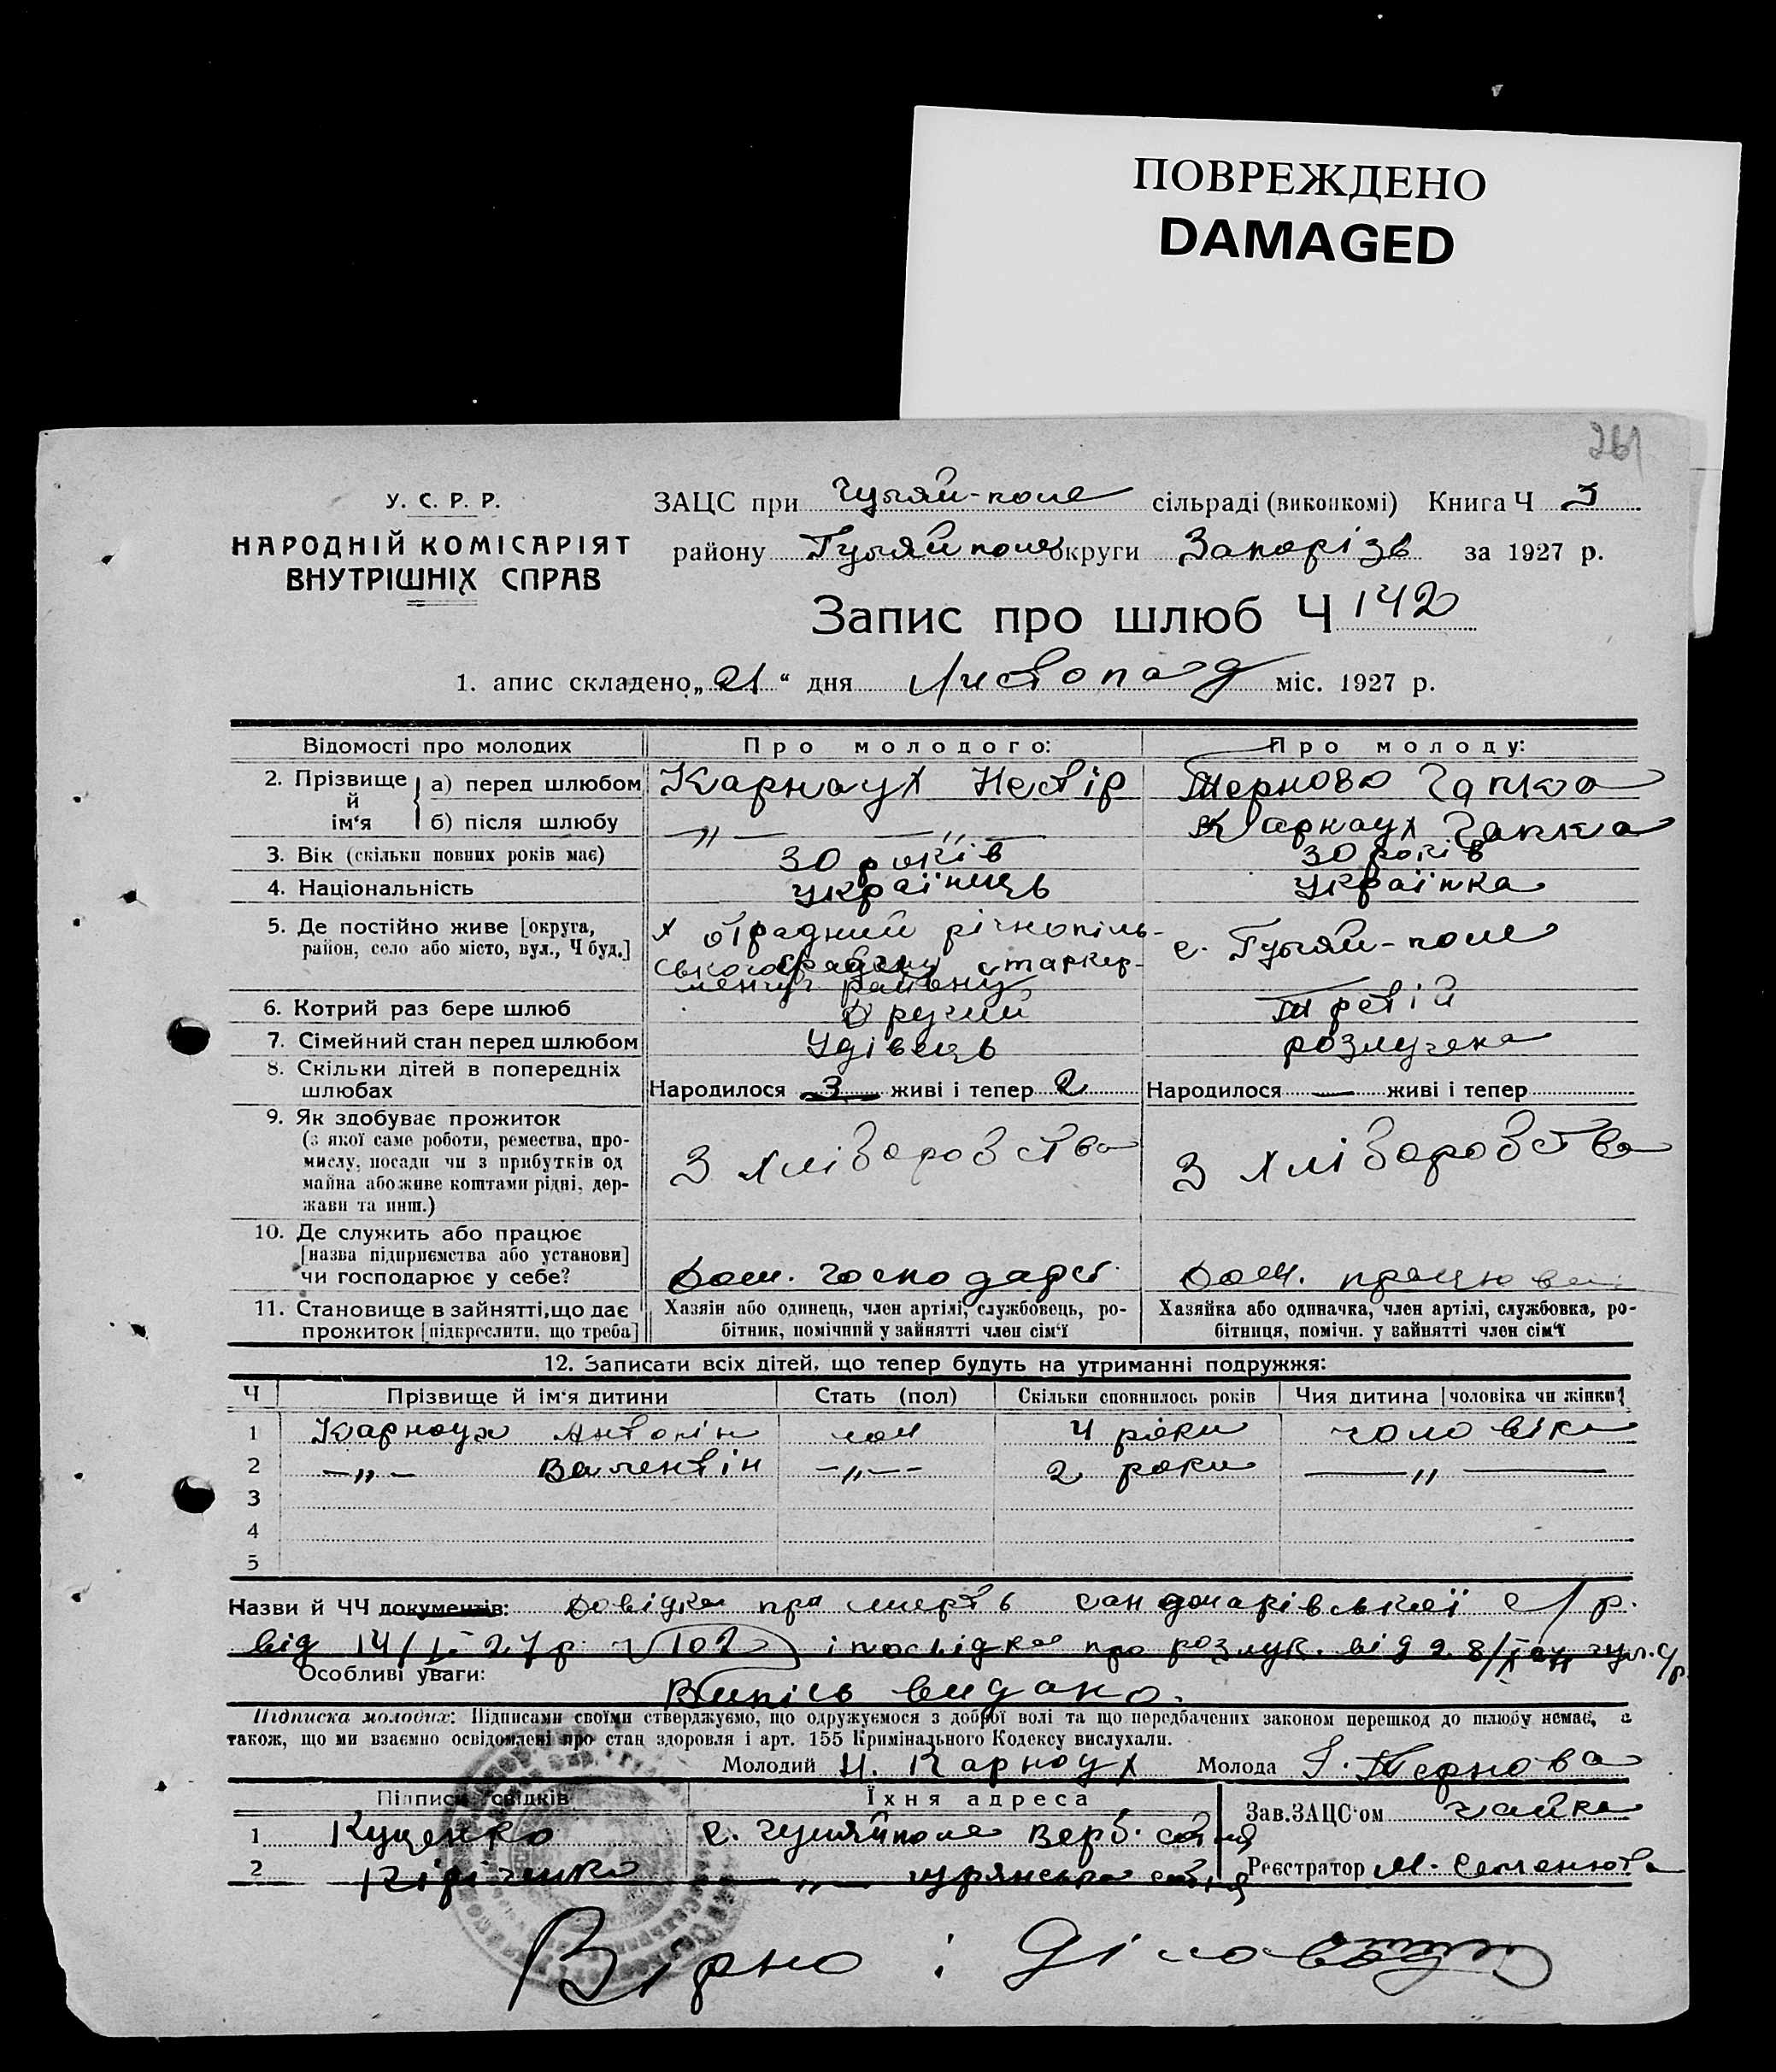 ПОВРЕЖДЕНО
DAMAGED
261
У. С. Р. Р.
НАРОДНІЙ КОМІСАРІЯТ
ВНУТРІШНІХ СПРАВ
ЗАЦС при Гуляй-поле сільраді (виконкомі) Книга Ч 3
району Гуляйполе округи Запорізь за 1927 р.
Запис про шлюб Ч 142
1. апис складено „21“ дня Листопад міс. 1927 р.
Відомості про молодих Про молодого: Про молоду:
2. Прізвище й ім‘я а) перед шлюбом Карнаух Нестір Тернова Гапка
б) після шлюбу —„— —„— Карнаух Гапка
3. Вік (скільки повних років має) 30 років 30 років
4. Національність Українець Українка
5. Де постійно живе [округа, район, село або місто, вул., Ч буд.] х Отрадний річнопільського району с. Гуляй-поле
6. Котрий раз бере шлюб Другий Третій
7. Сімейний стан перед шлюбом Удівець розлучена
8. Скільки дітей в попередніх шлюбах Народилося 3 живі і тепер 2 Народилося — живі і тепер
9. Як здобуває прожиток
(з якої саме роботи, ремества, промислу, посади чи з прибутків од майна або живе коштами рідні, держави та инш.) З хліборобства З хліборобства
10. Де служить або працює
[назва підприємства або установи]
чи господарює у себе? Дом. господарст. Дом. працює
11. Становище в зайнятті, що дає прожиток [підкреслити, що треба] Хазяін або одинець, член артілі, службовець, робітник, помічний у зайнятті член сім‘ї Хазяйка або одиначка, член артілі, службовка, робітниця, помічн. у зайнятті член сім‘ї
12. Записати всіх дітей, що тепер будуть на утриманні подружжя:
Ч Прізвище й ім‘я дитини Стать (пол) Скільки сповнилось років Чия дитина [чоловіка чи жінки]
1 Карнаух Антонін чол 4 роки чоловіка
2 —„— Валентін —„— 2 роки —„—
3
4
5
Назви й ЧЧ документів: Довідка про смерть с/р.
від 14/I-27 р. 102 і посвідка про розлук. від 28/
Особливі уваги:
Випісь видано.
Підписка молодих: Підписами своїми стверджуємо, що одружуємося з доброї волі та що передбачених законом перешкод до шлюбу немає, а
також, що ми взаємно освідомлені про стан здоровля і арт. 155 Кримінального Кодексу вислухали.
Молодий Н. Карноух Молода Г. Тернова
Підписи свідків Їхня адреса Зав. ЗАЦС‘ом Чайка
1 Куценко с. Гуляйполе Верб. сотня
2 Кіріченко —„— сотня Реєстратор М. Семенюта
Вірно: Діловод